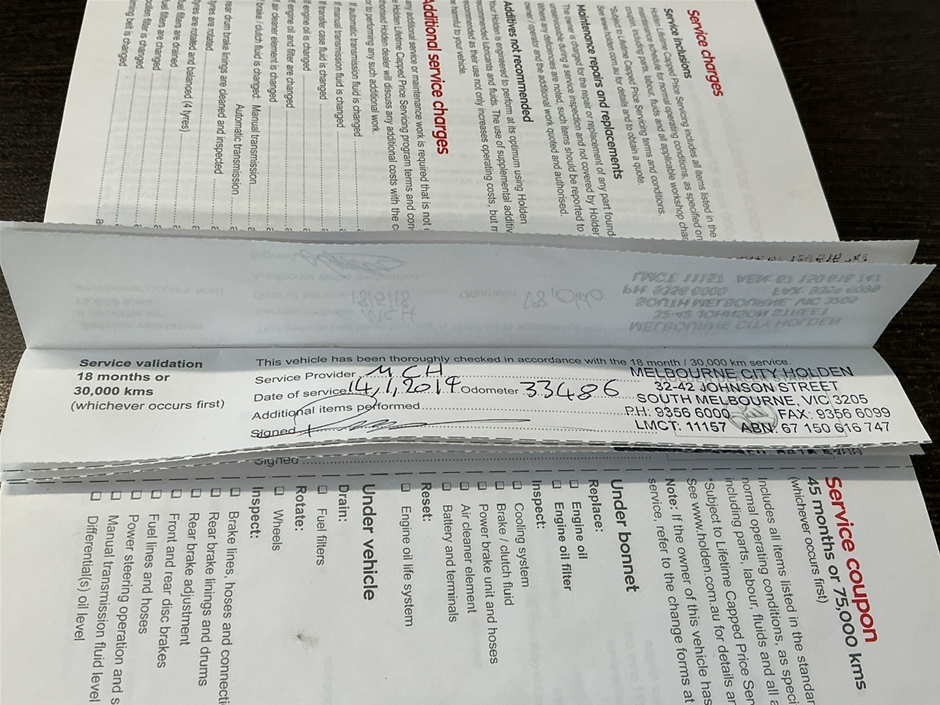 Service charges
Service inclusions
Holden Lifetime Capped Price Servicing includes all items listed in the
maintenance schedule for normal operating conditions, as specified on
coupon, including parts, labour, fluids and all applicable workshop
*Subject to Lifetime Capped Price Servicing terms and conditions.
See www.holden.com.au for details and to obtain a quote.
Maintenance repairs and replacements
The owner is charged for the repair or replacement of any part found
unserviceable during a service inspection and not covered by Holder
Where any deficiencies are noted, such items should be reported to
owner / operator and the additional work quoted and authorised.
Additives not recommended
Your Holden is engineered to perform at its optimum using Holden
recommended lubricants and fluids. The use of supplemental additiv
recommended as their use not only increases operating costs, but
be harmful to your vehicle.
Additional service charges
any additional service or maintenance work is required that is not
Holden Lifetime Capped Price Servicing program terms and con
Holden dealer will discuss any additional costs with the
to performing any such additional work.
If automatic transmission fluid is changed
If manual transmission fluid is changed
If transfer case fluid is changed
If engine oil is changed
If engine oil and filter are changed
If air cleaner element is changed
If brake / clutch fluid is changed: Manual transmission
Automatic transmission
rear drum brake linings are cleaned and inspected
tyres are rotated
tyres are rotated and balanced (4 tyres)
fuel filters are drained
fuel filters are changed
pollen filter is changed
ming belt is changed
Service validation
18 months or
30,000 kms
(whichever occurs first)
This vehicle has been thoroughly checked in accordance with the 18 month / 30,000 km service.
Service Provider MCH
Date of service 14,1,2019 Odometer 33486
Additional items performed
Signed
MELBOURNE CITY HOLDEN
32-42 JOHNSON STREET
SOUTH MELBOURNE, VIC 3205
PH: 9356 6000 FAX: 9356 6099
LMCT: 11157 ABN: 67 150 616 747
Signed
Service coupon
45 months or 75,000 kms
(whichever occurs first)
Includes all items listed in the standar
normal operating conditions, as speci
including parts, labour, fluids and all a
*Subject to Lifetime Capped Price Ser
See www.holden.com.au for details ar
Note: If the owner of this vehicle has
service, refer to the change forms at
Under bonnet
Replace:
Engine oil
Engine oil filter
Inspect:
Cooling system
Brake / clutch fluid
Power brake unit and hoses
Air cleaner element
Battery and terminals
Reset:
Engine oil life system
Under vehicle
Drain:
Fuel filters
Rotate:
Wheels
Inspect:
Brake lines, hoses and connecti
Rear brake linings and drums
Rear brake adjustment
Front and rear disc brakes
Fuel lines and hoses
Power steering operation and s
Manual transmission fluid level
Differential(s) oil level